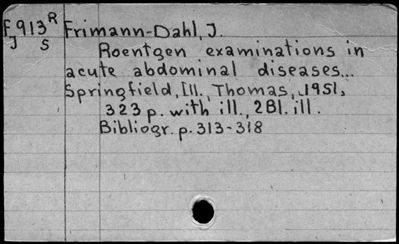 F913R Frimann-Dahl, J.
J S
Roentgen examinations in
acute abdominal diseases...
Springfield, Ill. Thomas, 1951,
323 p. with ill., 2Bl. ill.
Bibliogr. p. 313-318